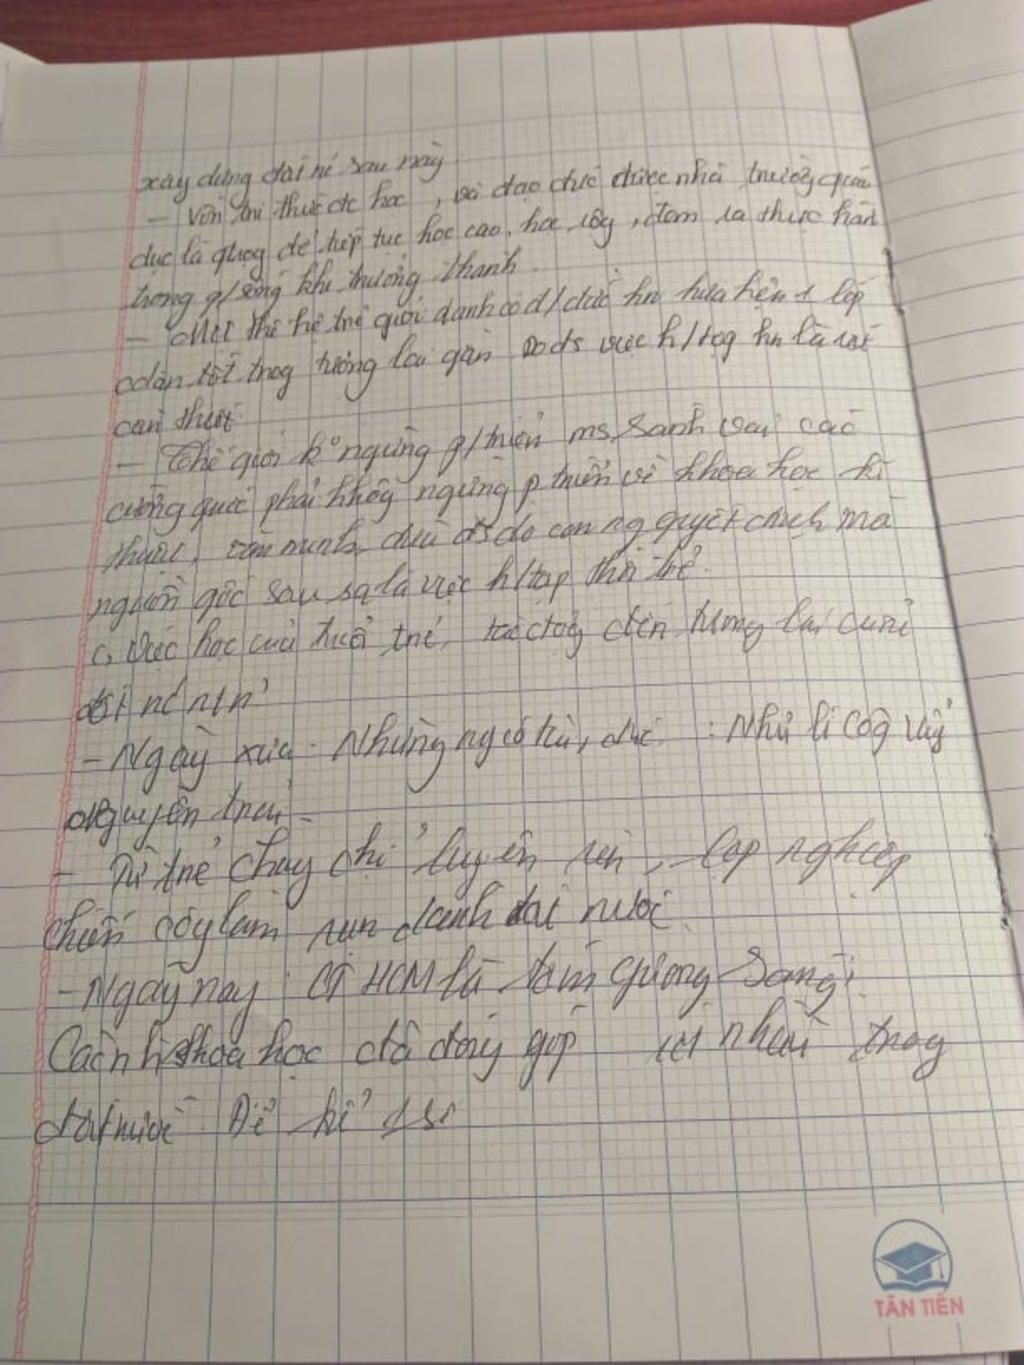 xây dựng đất nc sau này
- Vốn tri thức đc học, và đạo đức được nhà trường giáo
dục là quog để tiếp tục học cao, học, đem ra thực hàn
trong g/sống khi trưởng thành
- Một thế hệ trẻ giỏi dành có đ/đức hn hứa hẹn 1 lớp
cdân tốt trog tương lai gần Do ds việc h/tập hn là rất
cần thiết
- Thế giới k° ngừng p/triển ms Sánh vai các
cường quốc phải không ngừng p triển về khoa học kĩ
thuật, văn minh, điều ds do con ng quyết định mà
nguồn gốc sâu sa là việc h/tập thời trẻ.
c, Việc học của tuổi trẻ, tác động đến tương lai của
đất nc ntn?
- Ngày xưa. Những ng có tài, đức : Như lí côg Uẩn
Nguyên trai
- Từ trẻ chăm chỉ luyện rèn, lập nghiệp
chiến côg làm rạn danh đất nước
- Ngày nay : CT HCM là tấm gương sáng
Các nhà khoa học đã đóng góp rất nhiều trog
đất nước. Để kể 1 số
TÂN TIẾN